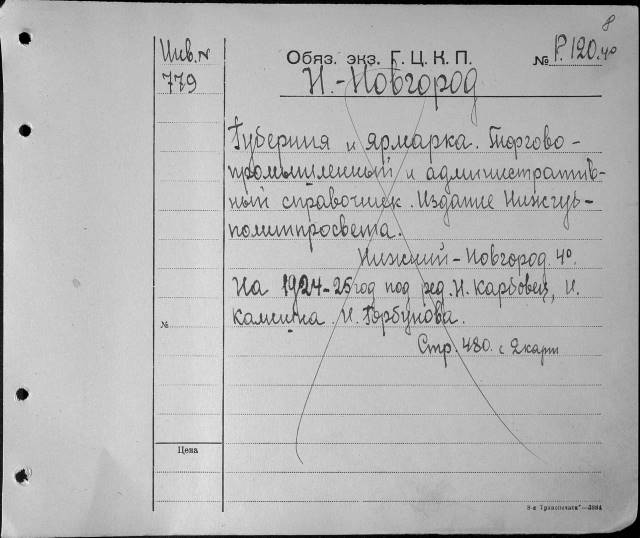 8
Инв. №
779
Обяз. экз. Г. Ц. К. П.
№ Р.120.4о
Н.-Новгород
Губерния и ярмарка. Торгово-
промышленный и административ-
ный справочник. Издание Нижгуб-
политпросвета.
Нижний-Новгород. 4о.
На 1924-25 год под ред. Н. Карбовец, И.
И. Горбунова.
№
Стр. 480. с 2 карт
Цена
3884